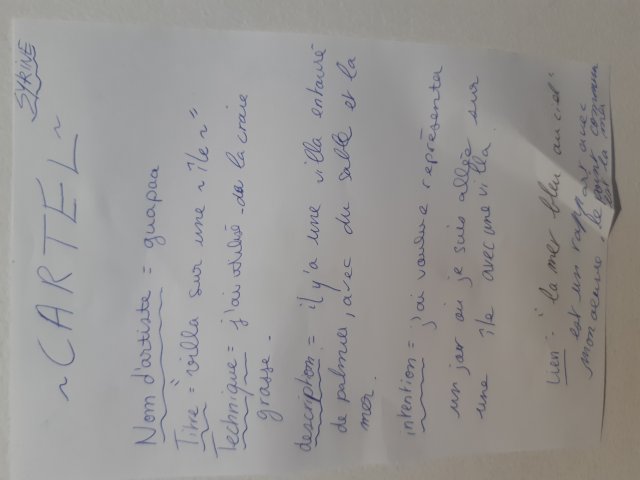 SYRINE
~ CARTEL ~
Nom d'artiste = guapaa
Titre = "villa sur une ~ île ~"
Technique = j'ai utilisé de la craie
grasse.
description = il y'a une villa entouré
de palmier, avec du sable et la
mer.
intention = j'ai voulue représenter
un jour où je suis allée sur
une île avec une villa.
Lien : "la mer bleu au ciel"
est un rapport avec
mon œuvre, le point commun
est la mer